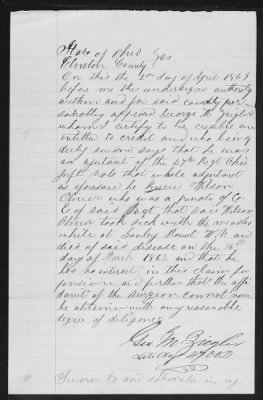 State of Ohio
Clinton County } ss
On this the 2nd day of April 1863
before me the undersigned authority
within and for said county per-
sonally appeared George M. Ziegler
whom I certify to be credible and
entitled to credit and who being
duly sworn says that he was
an adjutant of the 47th Regt Ohio
Inft. vols that while adjutant
as aforesaid he knew Wilson
who was a private of Co
of said Regt. that said Wilson
took sick with the measles
while at Gauley Mount W.V. and
died of said disease on the 16th
day of March 1862 and that he
has no interest in this claim for
pension and further that the affi-
davit of the surgeon cannot now
be obtained with any reasonable
degree of diligence
Geo M Ziegler
Late Adjt 47 OVI
Sworn to and subscribed in my